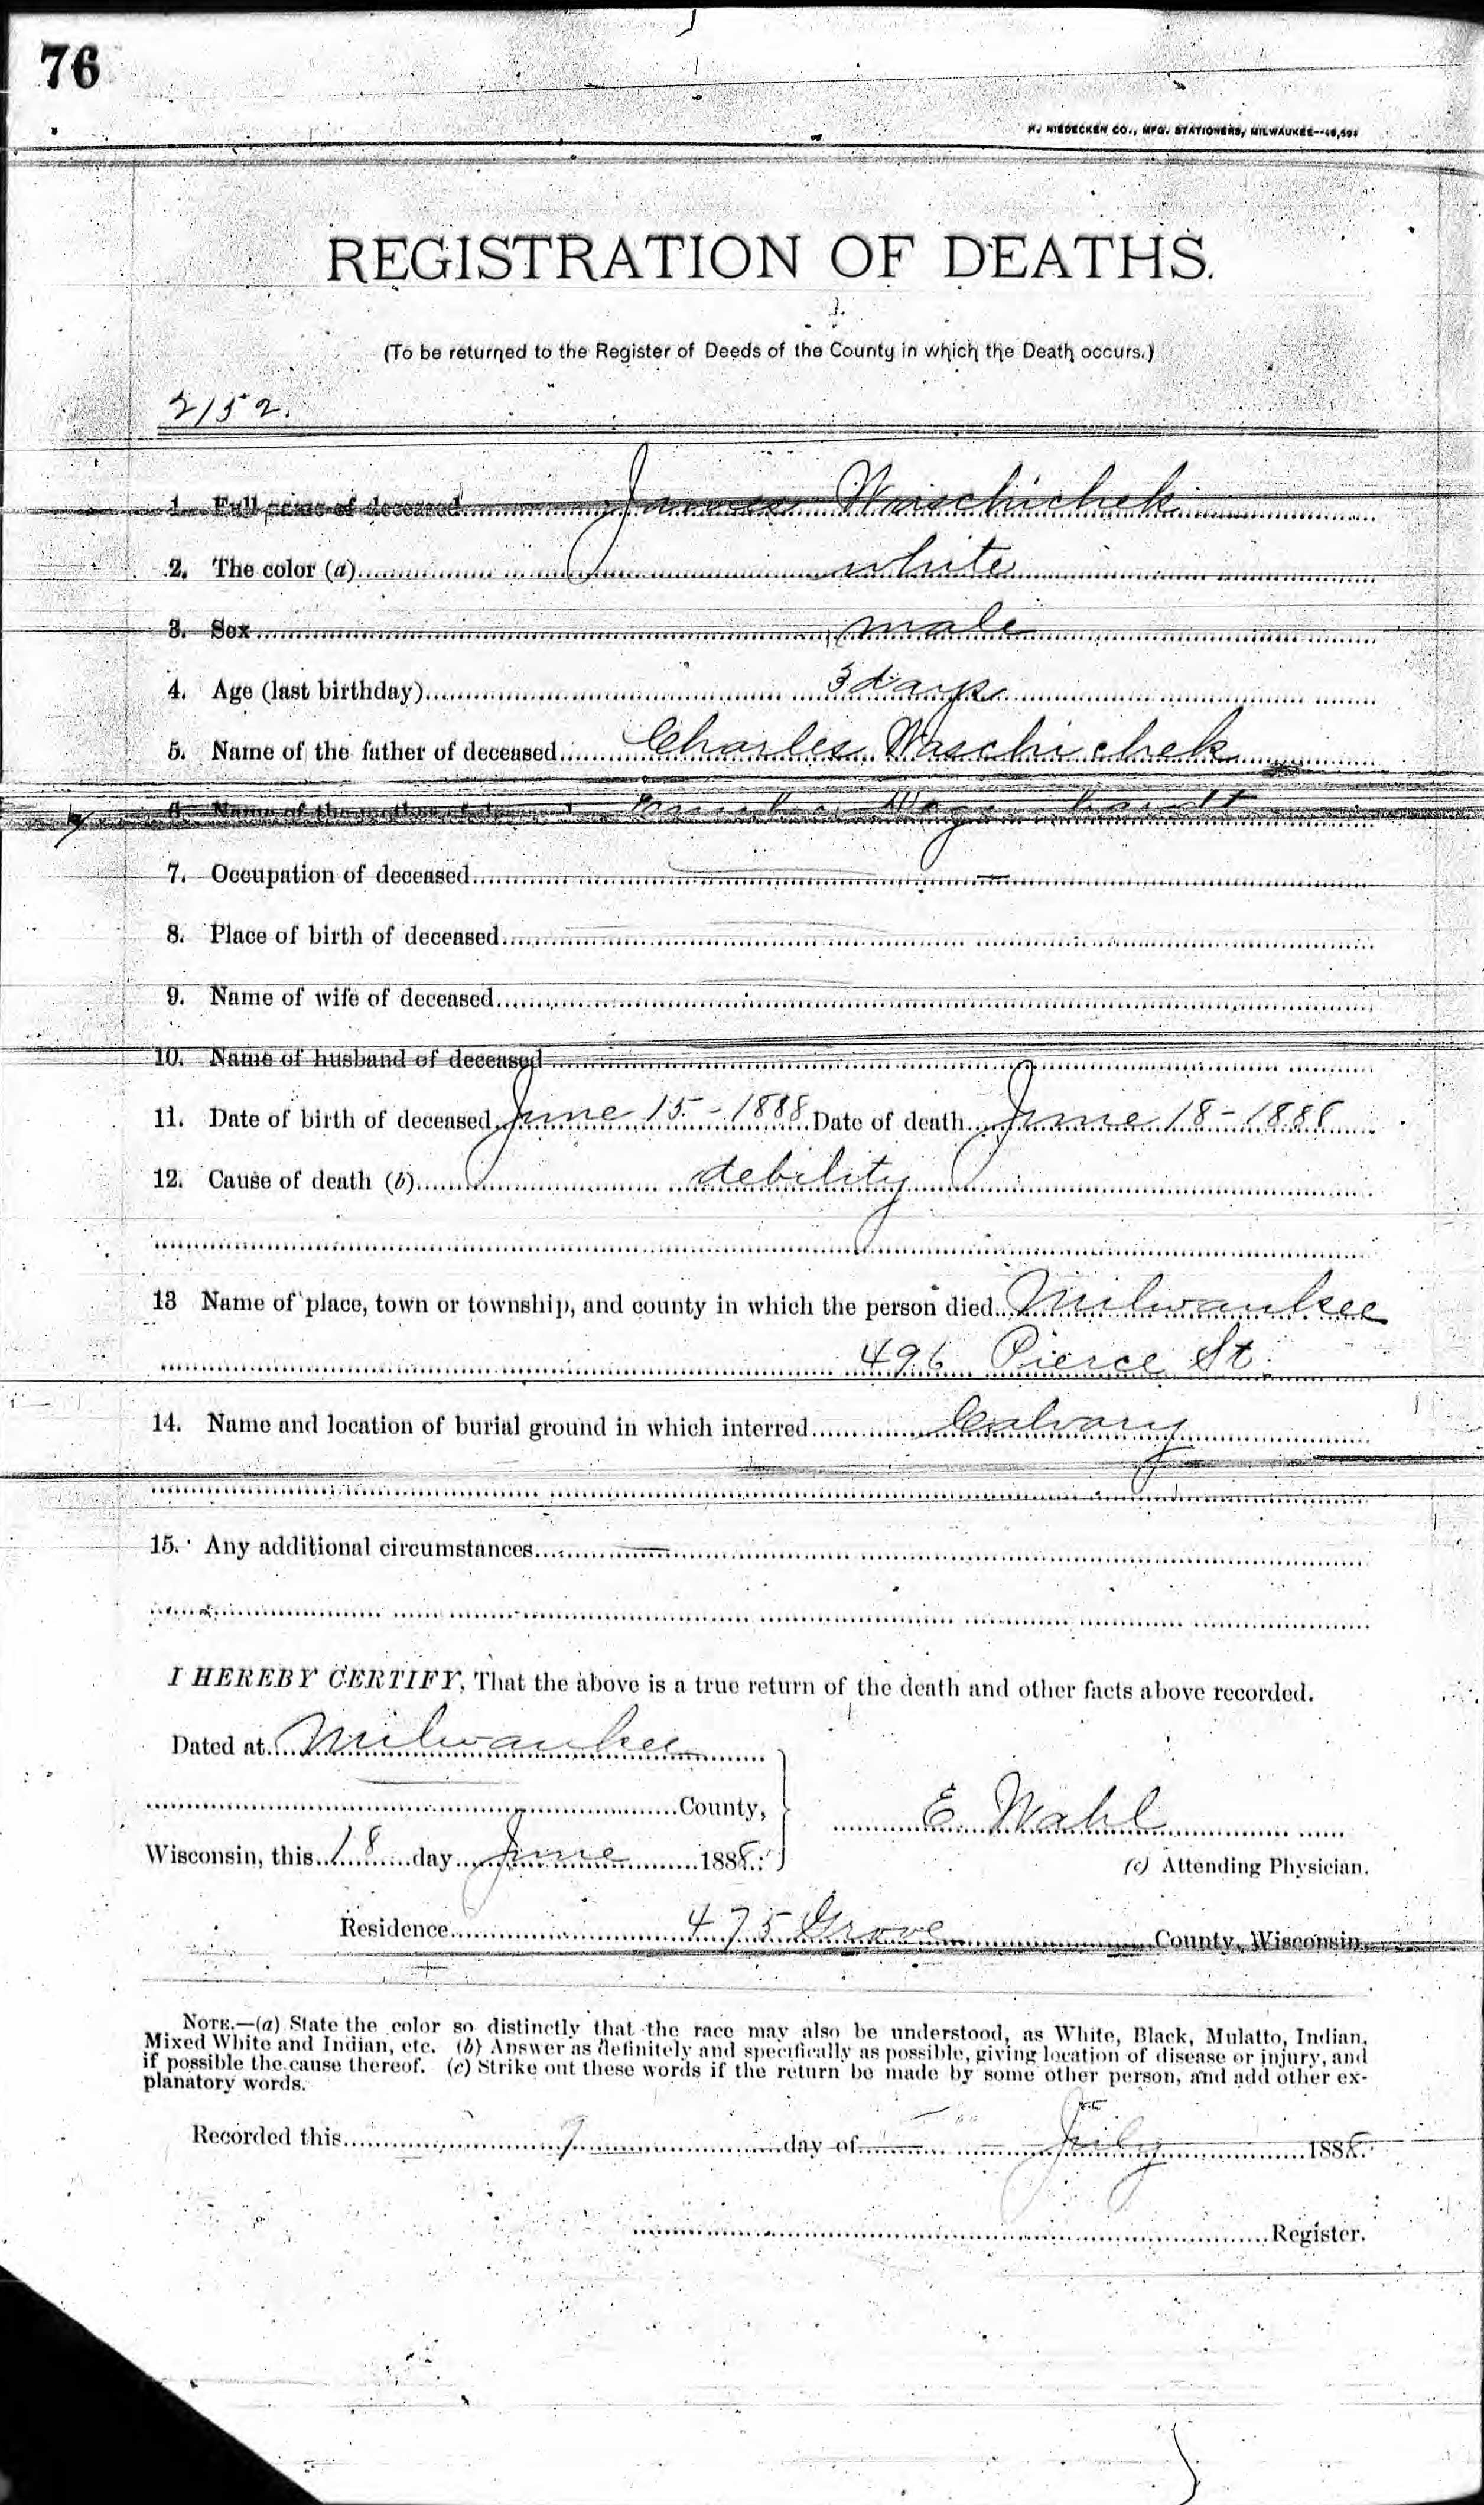 76
H. NIEDECKEN CO., MFG. STATIONERS, MILWAUKEE--
REGISTRATION OF DEATHS.
(To be returned to the Register of Deeds of the County in which the Death occurs.)
2152.
1. Full name of deceased James Waschichek
2. The color (a) white
3. Sex male
4. Age (last birthday) 3 days
5. Name of the father of deceased Charles Waschichek
6. Name of the mother of deceased
7. Occupation of deceased —
8. Place of birth of deceased
9. Name of wife of deceased
10. Name of husband of deceased
11. Date of birth of deceased June 15 - 1888 Date of death June 18 - 1888
12. Cause of death (b) debility
13 Name of place, town or township, and county in which the person died Milwaukee
496 Pierce St.
14. Name and location of burial ground in which interred Calvary
15. Any additional circumstances —
I HEREBY CERTIFY, That the above is a true return of the death and other facts above recorded.
Dated at Milwaukee
County,
E. Wahl
Wisconsin, this 18 day June 1888.
(c) Attending Physician.
Residence 475 Grove County, Wisconsin.
NOTE.—(a) State the color so distinctly that the race may also be understood, as White, Black, Mulatto, Indian,
Mixed White and Indian, etc. (b) Answer as definitely and specifically as possible, giving location of disease or injury, and
if possible the cause thereof. (c) Strike out these words if the return be made by some other person, and add other ex-
planatory words.
Recorded this 9 day of July 1888.
Register.